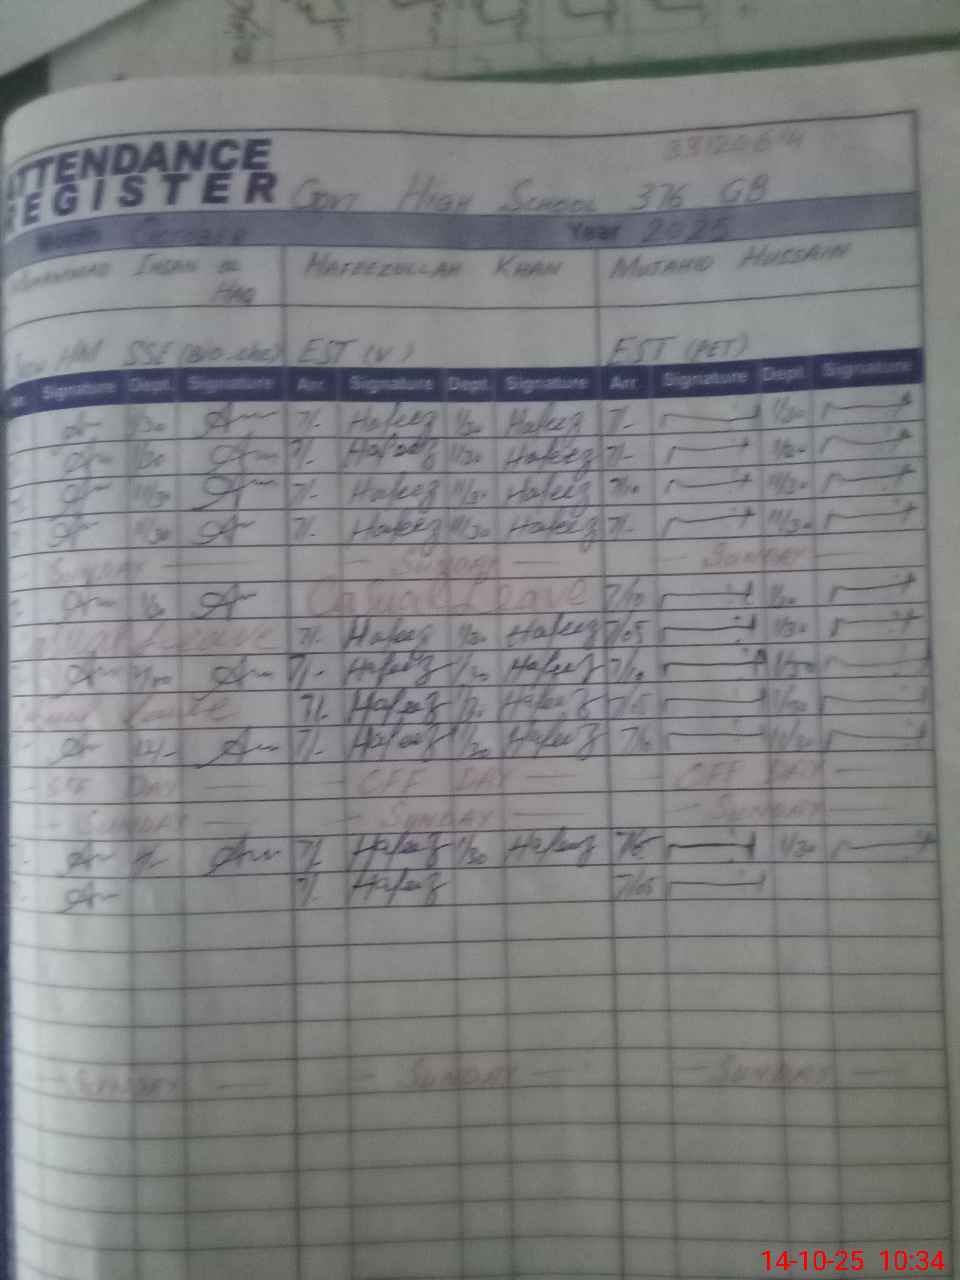 33120614
ATTENDANCE
REGISTER Govt High School 376 GB
Month October Year 2025
Muhammad Ihsan ul Haq Hafeezullah Khan Mutahid Hussain
HM SSE (Bio-Che) EST (V) EST (PET)
Signature Dept. Signature Arr. Signature Dept. Signature Arr. Signature Dept. Signature
1/30 7/- Hafeez 1/30 Hafeez 7/- 1/30
1/30 7/- Hafeez 11/30 Hafeez 7/-
11/30 7/- Hafeez 11/30 Hafeez 7/10 11/30
11/30 7/- Hafeez 11/30 Hafeez 7/- 11/30
Sunday Sunday Sunday
Casual Leave 7/10
Casual Leave 7/- Hafeez 1/30 Hafeez 7/05 1/30
7/- Hafeez 1/30 Hafeez 7/10 1/30
Casual Leave 7/- Hafeez Hafeez 7/05 1/30
12/- 7/- Hafeez 1/30 Hafeez 7/10 11/30
OFF DAY OFF DAY OFF DAY
Sunday Sunday Sunday
7/- Hafeez 1/30 Hafeez 7/5 1/30
7/- Hafeez 7/05
Sunday Sunday Sunday
14-10-25 10:34